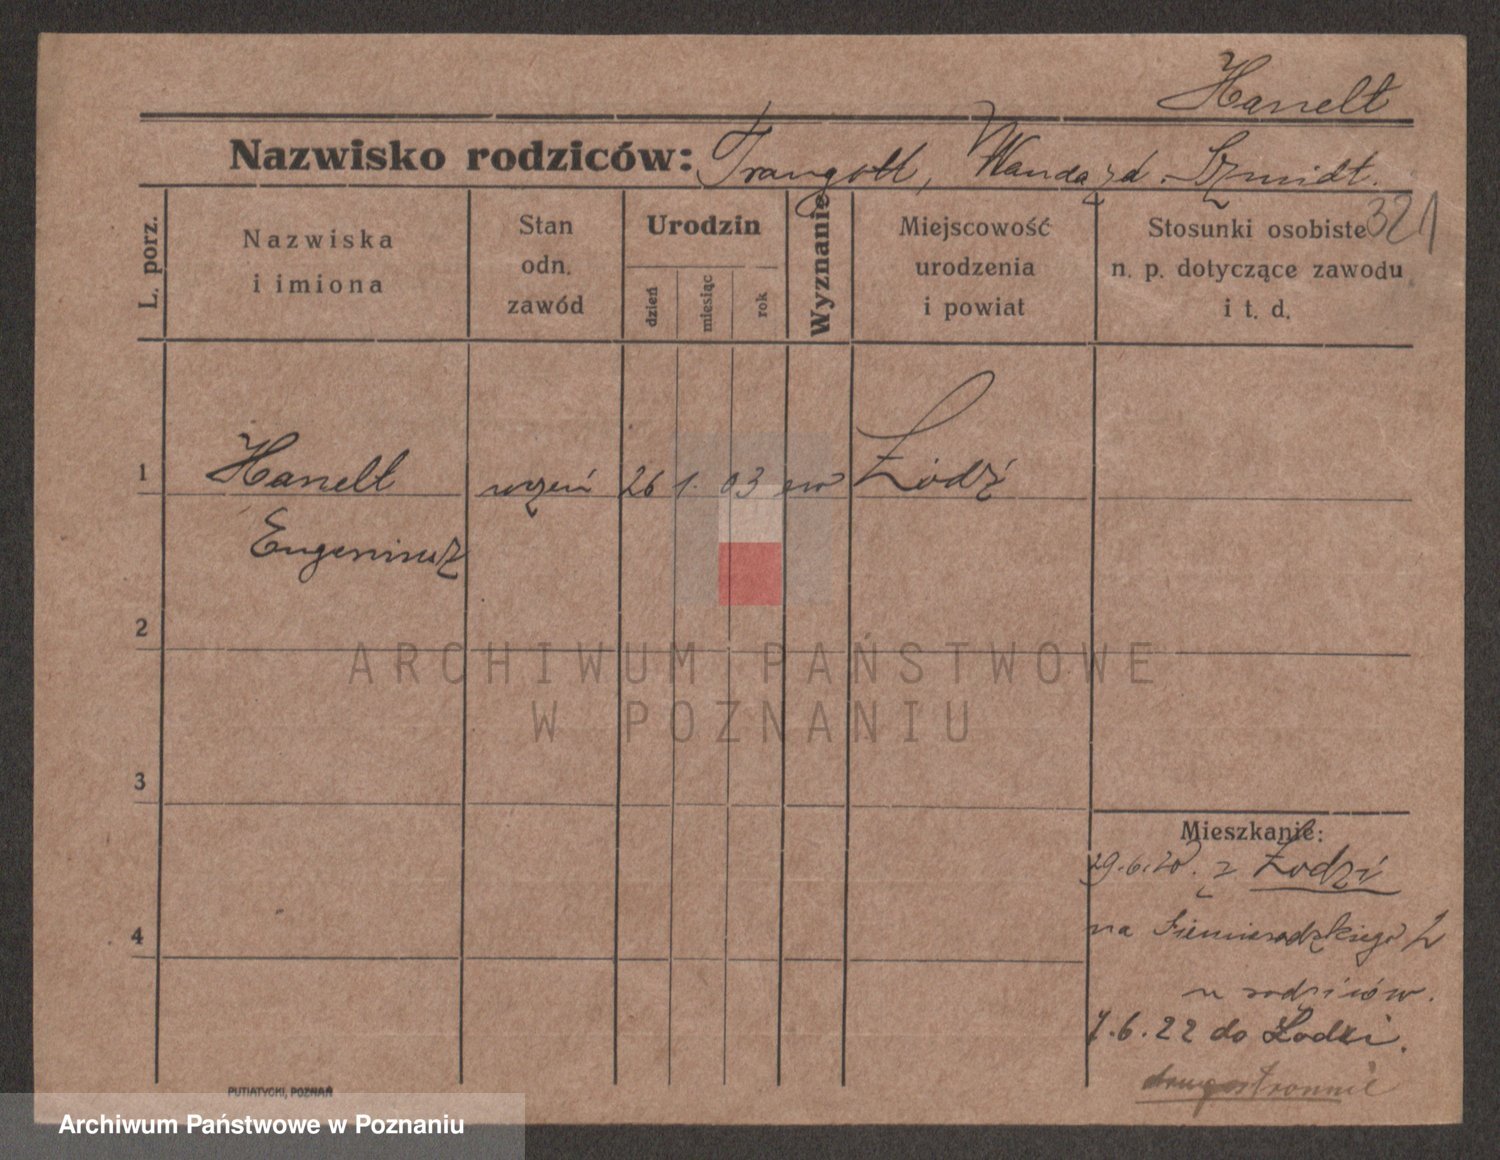 Hanelt
Nazwisko rodziców: Traugott, Wanda zd. Szmidt.
321
L. porz.
Nazwiska
i imiona
Stan
odn.
zawód
Urodzin
dzień
miesiąc
rok
Wyznanie
Miejscowość
urodzenia
i powiat
Stosunki osobiste
n. p. dotyczące zawodu
i t. d.
1 Hanelt uczeń 26 1. 03 ew Łódź
Eugeniusz
2
ARCHIWUM PAŃSTWOWE
W POZNANIU
3
Mieszkanie:
29.6.20. z Łodzi
4
na Siemiradzkiego 2
u rodziców.
7.6.22 do Łodzi.
drugostronnie
PUTIATYCKI, POZNAŃ
Archiwum Państwowe w Poznaniu